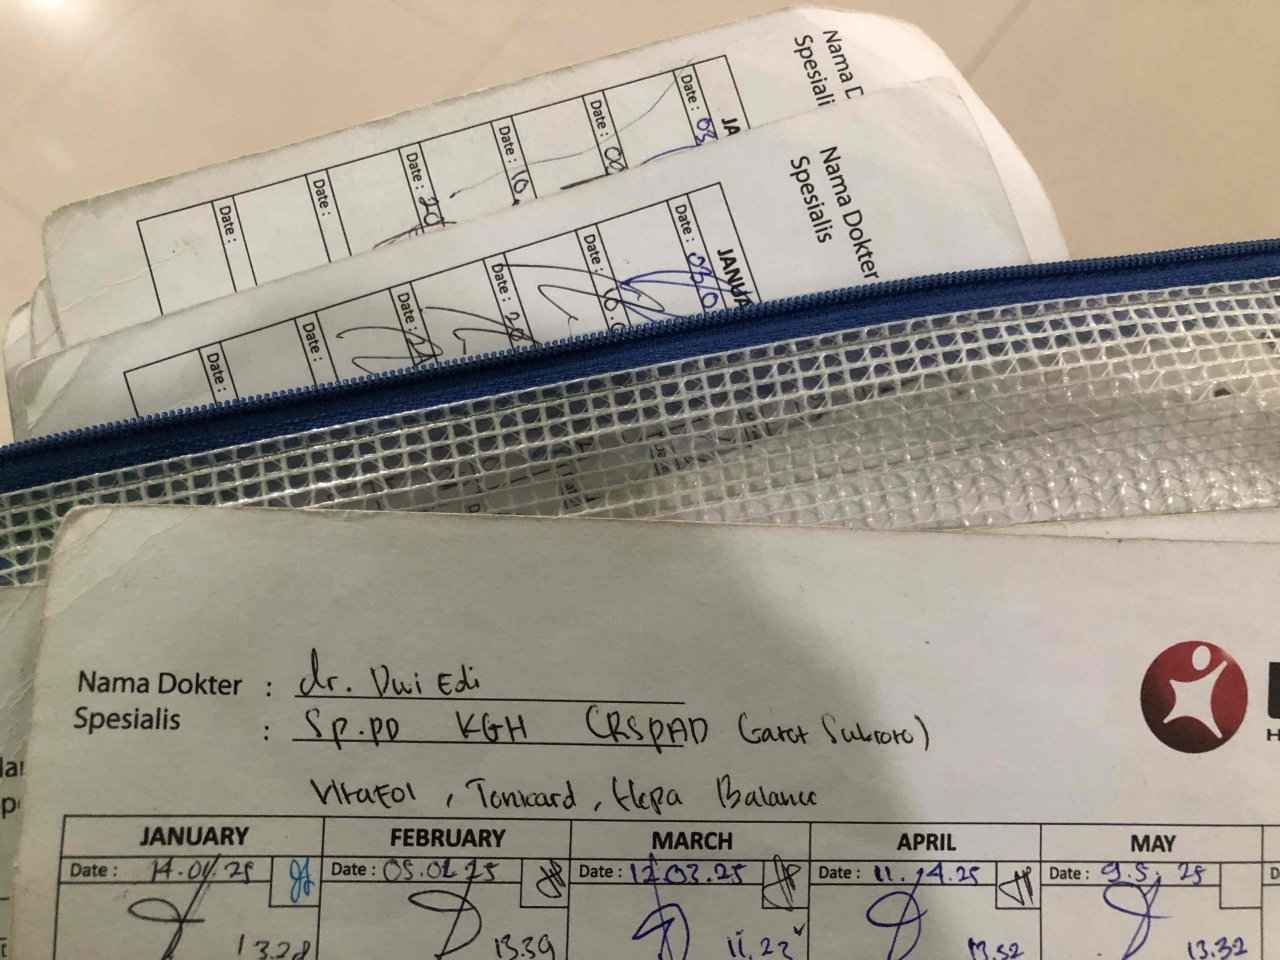 Nama D
Spesiali
JA
Date : 03
Date : 06
Date : 10.
Date : 20
Date :
Date :
Nama Dokter
Spesialis
JANUA
Date : 03/0
Date : 10.0
Date : 20
Date :
Date :
Date :
Nama Dokter : dr. Dwi Edi
Spesialis : Sp.PD KGH (RSPAD Gatot Subroto)
, Tonicard, Hepa Balance
JANUARY FEBRUARY MARCH APRIL MAY
Date : 14.01.25 Date : 05.02.25 Date : 12.03.25 Date : 11.14.25 Date : 9.5.25
13.28 13.39 11.23 13.52 13.32